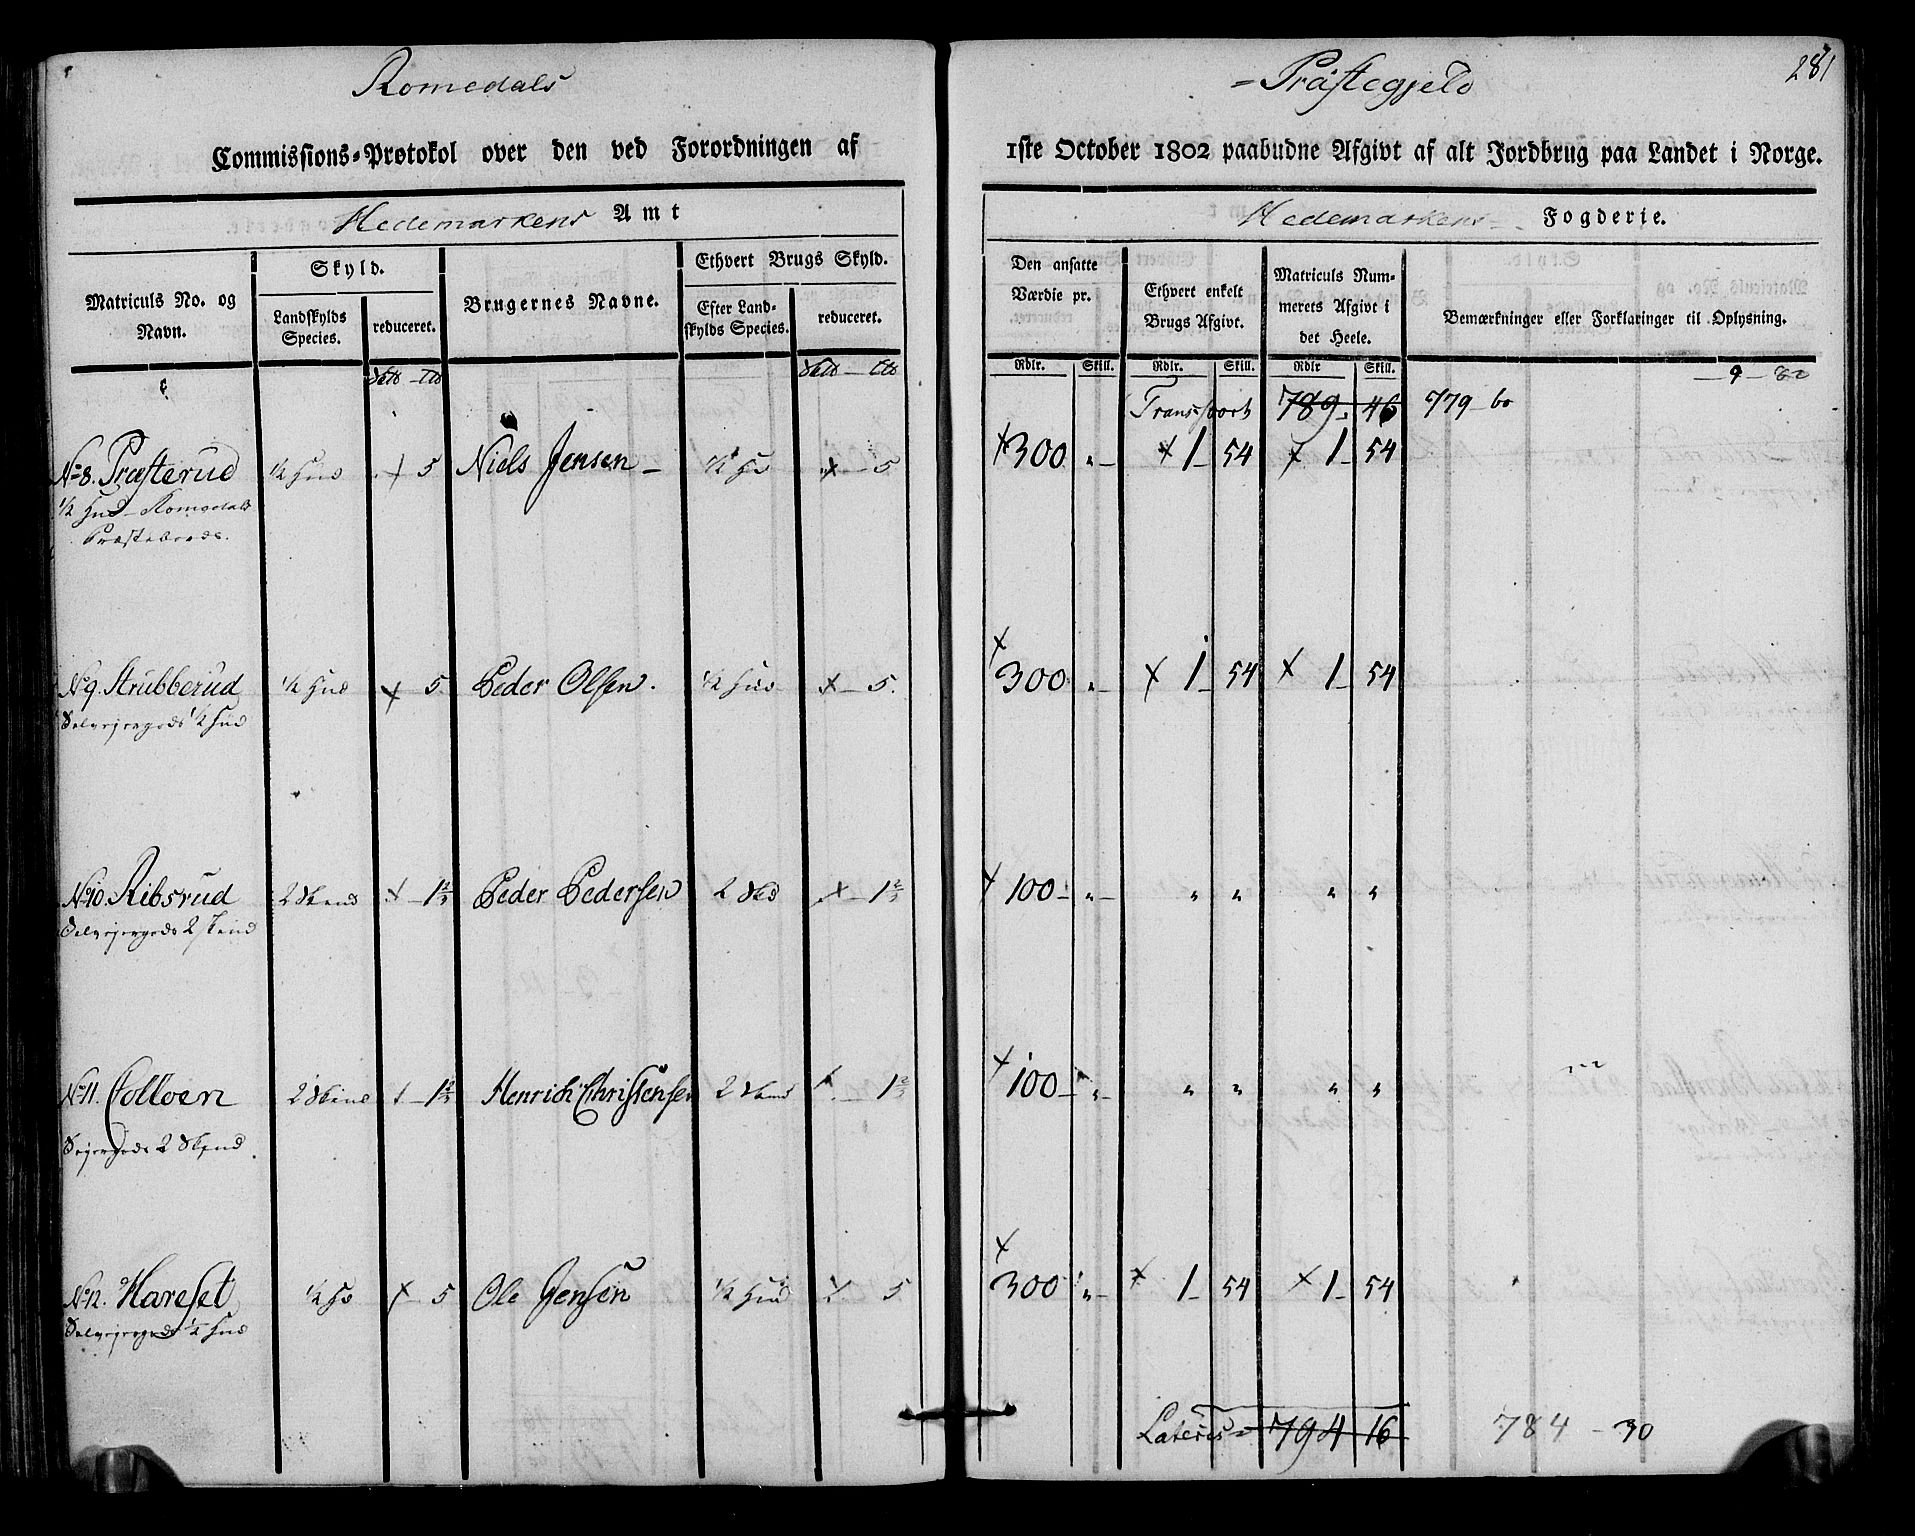 Romedals
Commissions-Protokol over den ved Forordningen af
Hedemarkens Amt
Matriculs No. og Navn.
Skyld.
Landskylds Species.
reduceret.
Brugernes Navne.
Ethvert Brugs Skyld.
Efter Landskylds Species.
reduceret.
No 8. Præsterud ½ Hud × 5 Niels Jensen – ½ Hd × – 5
½ Hud Romedals
Præsteboeds.
No 9. Strubberud ½ Hud × – 5 Peder Olsen. ½ Hud × – 5.
Selvejergods ½ Hud
No 10. Ribsrud 2 Skind × – 1⅔ Peder Pedersen 2 Skd × – 1⅔
Selvejergods 2 Skind
No 11. Colloen 2 Skind 1 – 1⅔ Henrich Christensen 2 Skind – 1⅔
Sejergods 2 Skind
No 12. Hareset ½ Hd × – 5 Ole Jensen ½ Hud × 5
Selvejergods ½ Hud
– Præstegjeld
281
1ste October 1802 paabudne Afgivt af alt Jordbrug paa Landet i Norge.
Hedemarkens – Fogderie.
Den ansatte Værdie pr.
Ethvert enkelt Brugs Afgivt.
Matriculs Nummerets Afgivt i det Heele.
Bemærkninger eller Forklaringer til Oplysning.
Rdlr. Skill. Rdlr. Skill. Rdlr Skill. – 9 – 80
Transport 789. 46 779 – 60
× 300 „ – × 1 – 54 × 1 – 54
× 300 „ – × 1 – 54 × 1 – 54
× 100 – „ – „ „ „ „
× 100 – „ – „ „ „ „
× 300 „ – × 1 – 54 × 1 – 54
Lateris = 794 16 784 – 30